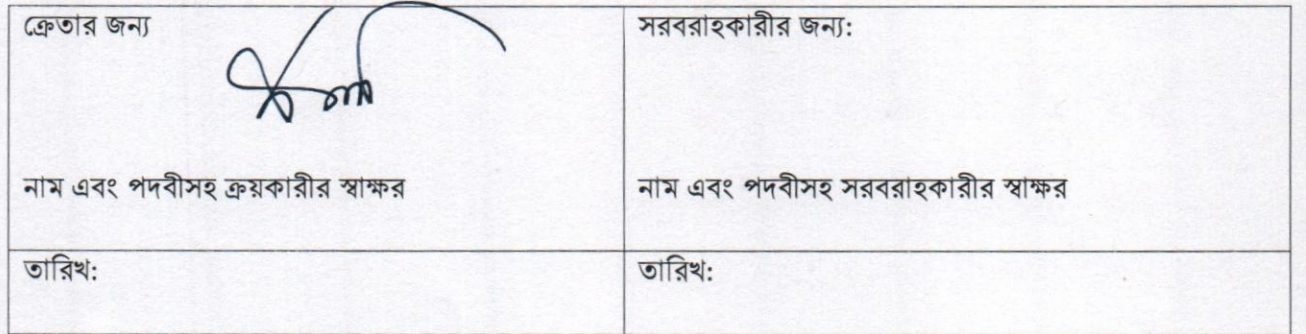 ক্রেতার জন্য
নাম এবং পদবীসহ ক্রয়কারীর স্বাক্ষর
তারিখ:
সরবরাহকারীর জন্য:
নাম এবং পদবীসহ সরবরাহকারীর স্বাক্ষর
তারিখ: